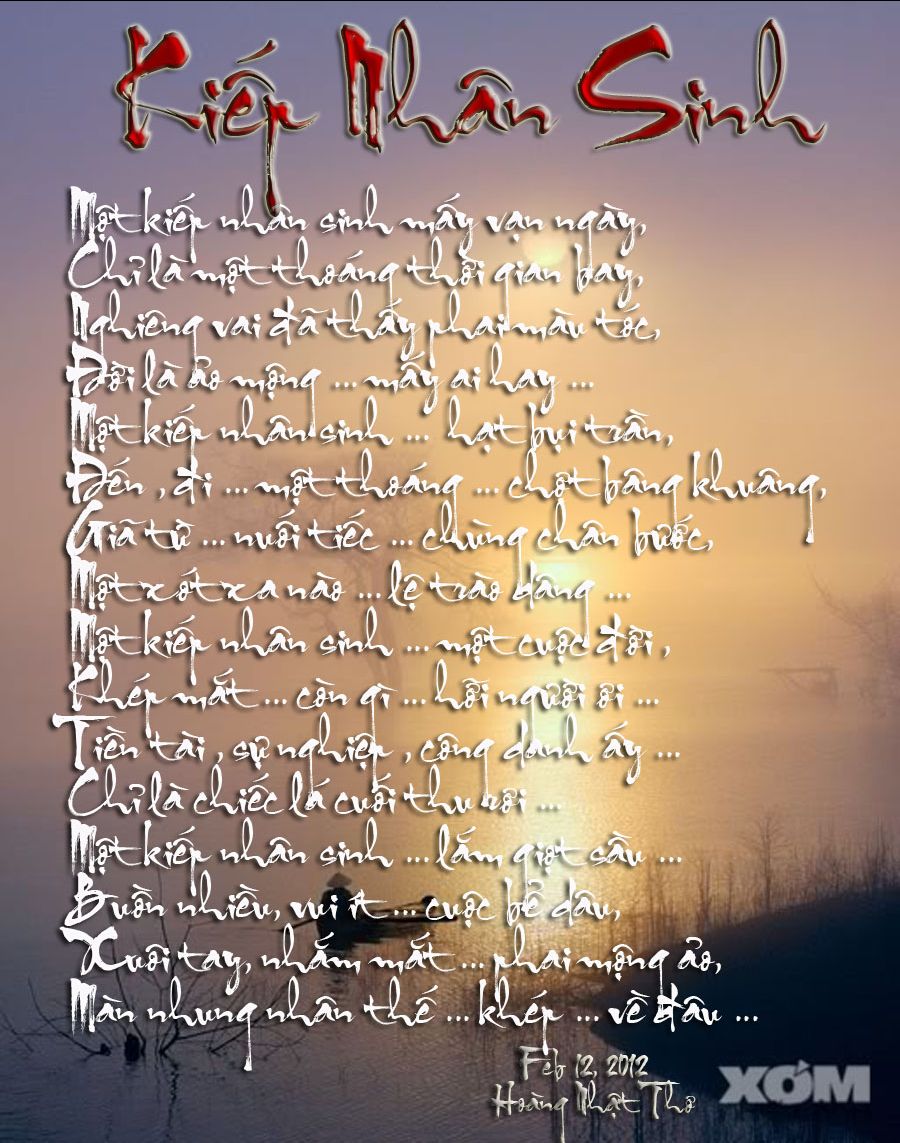 Kiếp Nhân Sinh
Một kiếp nhân sinh mấy vạn ngày,
Chỉ là một thoáng thời gian bay,
Nghiêng vai đã thấy phai màu tóc,
Đời là ảo mộng ... mấy ai hay ...
Một kiếp nhân sinh ... hạt bụi trần,
Đến , đi ... một thoáng ... chợt bâng khuâng,
Giã từ ... nuối tiếc ... chùng chân bước,
Một xót xa nào ... lệ trào dâng ...
Một kiếp nhân sinh ... một cuộc đời ,
Khép mắt ... còn gì ... hỡi người ơi ...
Tiền tài , sự nghiệp , công danh ấy ...
Chỉ là chiếc lá cuối thu rơi ...
Một kiếp nhân sinh ... lắm giọt sầu ...
Buồn nhiều, vui ít ... cuộc bể dâu,
Xuôi tay, nhắm mắt ... phai mộng ảo,
Màn nhung nhân thế ... khép ... về đâu ...
Feb 12, 2012
Hoàng Nhật Thơ
XÓM